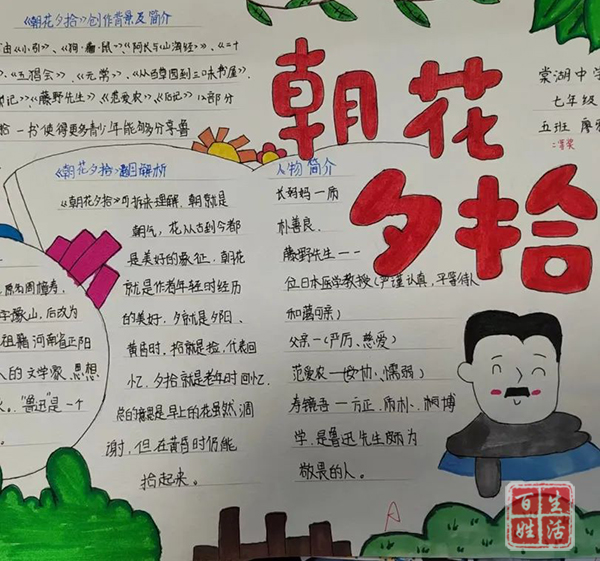 《朝花夕拾》创作背景及简介
由《小引》、《狗·猫·鼠》、《阿长与山海经》、《二十
、《五猖会》、《无常》、《从百草园到三味书屋》、
记》、《藤野先生》、《范爱农》、《后记》12部分
一书使得更多青少年能够分享鲁
朝花
夕拾
棠湖中学
七年级
五班 廖
二等奖
《朝花夕拾》题目解析
《朝花夕拾》可拆来理解,朝就是
朝气,花从古到今都
是美好的象征,朝花
就是作者年轻时经历
的美好,夕就是夕阳、
黄昏时,拾就是捡,代表回
忆,夕拾就是老年时回忆.
总的摘要是早上的花虽然凋
谢,但在黄昏时仍能
拾起来。
人物简介
长妈妈—质
朴善良.
藤野先生——
位日本医学教授(严谨认真,平等待人
和蔼可亲)
父亲—(严厉、慈爱)
范爱农— 懦弱)
寿镜吾—方正、质朴、渊博
学,是鲁迅先生颇为
敬畏的人。
原名周樟寿,
字豫山,后改为
祖籍河南省正阳
人的文学家、思想
"鲁迅"是一个
A
百姓生活